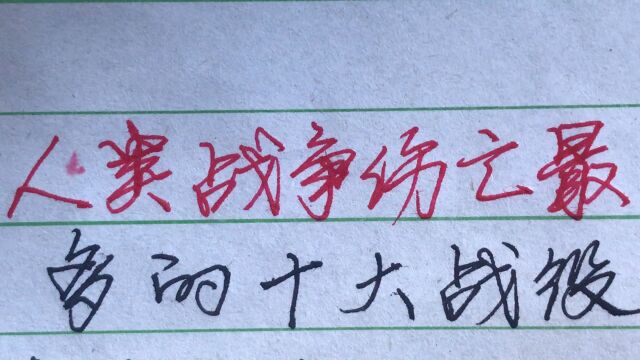 人类战争伤亡最
多的十大战役